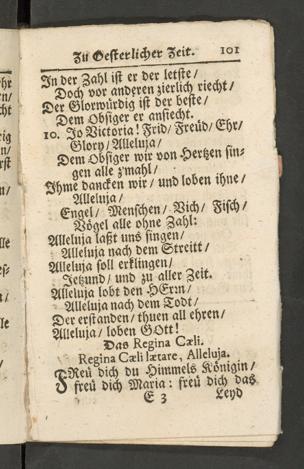 Zu Oesterlicher Zeit. 101
In der Zahl ist er der letste/
Doch vor anderen zierlich riecht/
Der Glorwürdig ist der beste/
Dem Obsiger er ansiecht.
10. Jo Victoria! Frid/ Freüd/ Ehr/
Glory/ Alleluja/
Dem Obsiger wir von Hertzen sin-
gen alle z'mahl/
Ihme dancken wir/ und loben ihne/
Alleluja/
Engel/ Menschen/ Vich/ Fisch/
Vögel alle ohne Zahl:
Alleluja laßt uns singen/
Alleluja nach dem Streitt/
Alleluja soll erklingen/
Jetzund/ und zu aller Zeit.
Alleluja lobt den HErrn/
Alleluja nach dem Todt/
Der erstanden/ thuen all ehren/
Alleluja/ loben GOtt!
Das Regina Cæli.
Regina Cæli lætare, Alleluja.
FReü dich du Himmels Königin/
freü dich Maria: freü dich das
E 3 Leyd